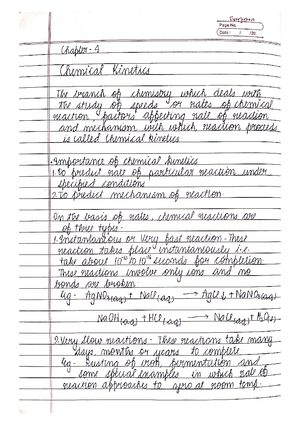 Page No.
Date: / /20
Chapter - 4
Chemical Kinetics
The branch of chemistry which deals with
the study of speeds or rates of chemical
reaction, factors affecting rate of reaction
and mechanism with which reaction proceeds
is called Chemical kinetics.
• Importance of chemical kinetics
1. To predict rate of particular reaction under
specified conditions
2. To predict mechanism of reaction
On the basis of rates, chemical reactions are
of three types -
1. Instantaneous or Very fast reaction - These
reaction takes place instantaneously i.e
take about 10⁻¹² to 10⁻¹⁶ seconds for completion
These reactions involve only ions and no
bonds are broken
Eg - AgNO₃(aq) + NaCl(aq) → AgCl↓ + NaNO₃(aq)
NaOH(aq) + HCl(aq) → NaCl(aq) + H₂O(l)
2. Very slow reactions - These reactions take many
days, months or years to complete
Eg - Rusting of iron, fermentation and
some special examples in which rate of
reaction approaches to zero at room temp.